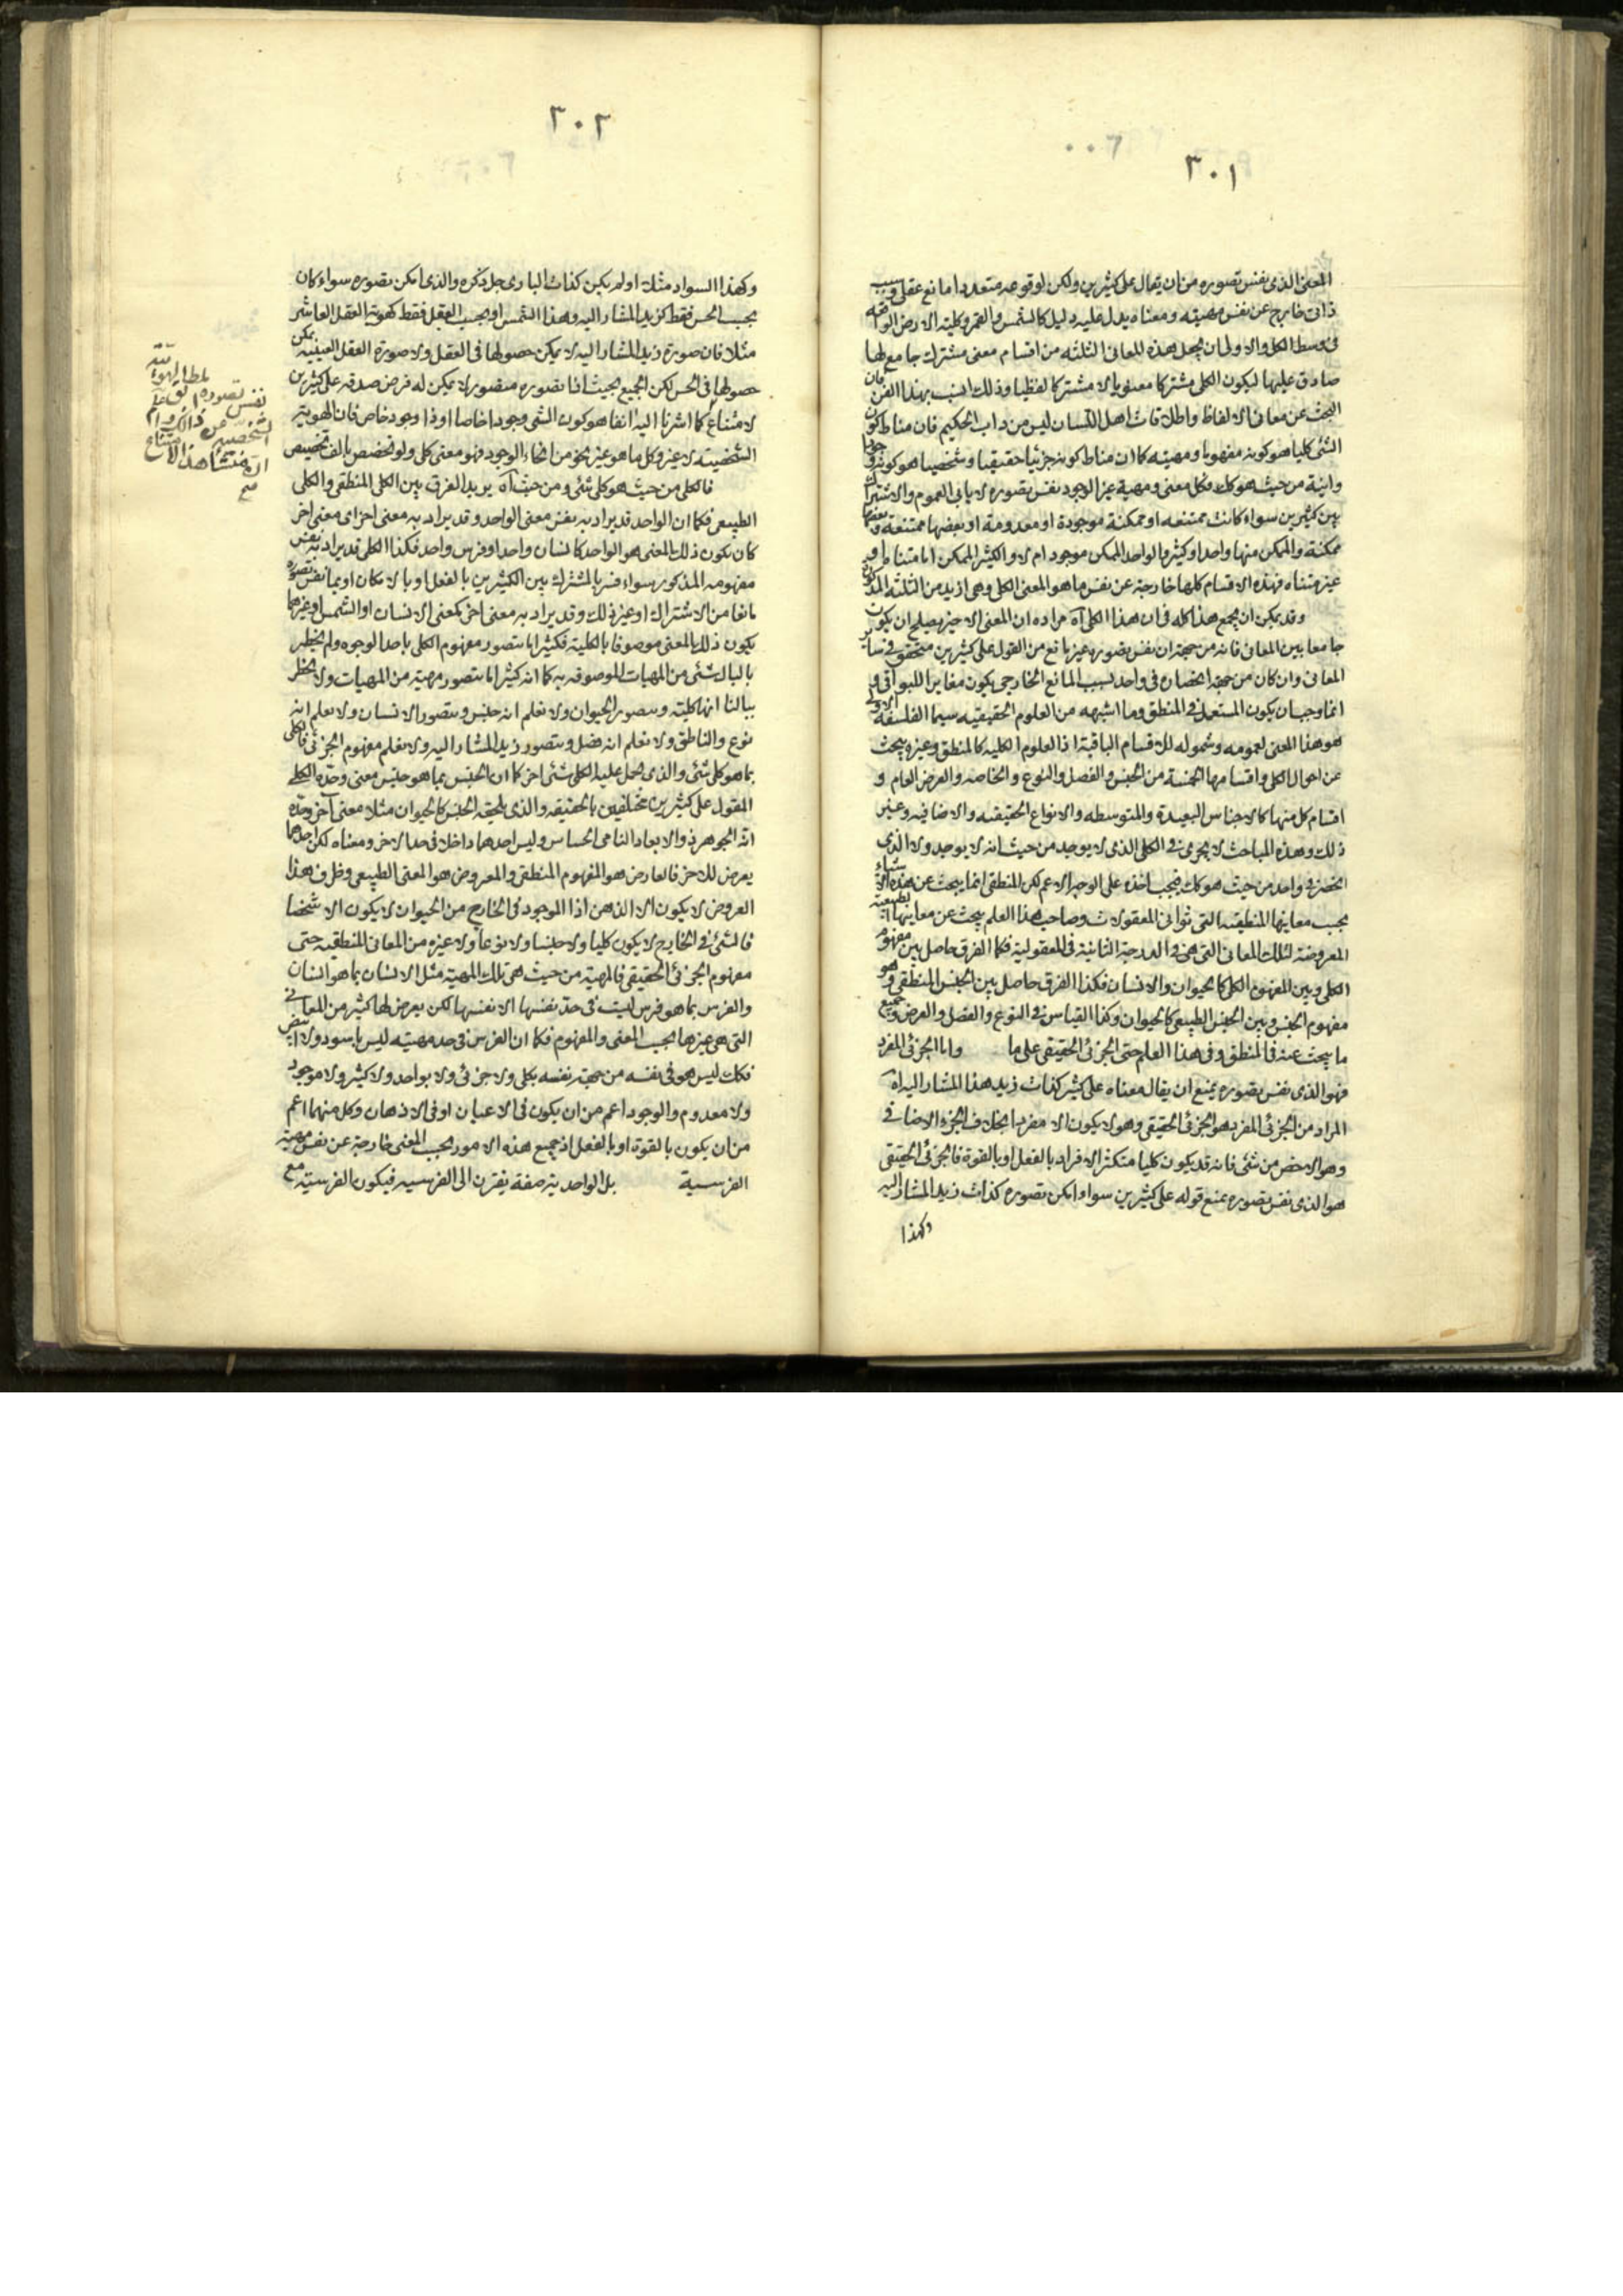 ٣٠١
المعنى الذى نفس تصوره من ان يقال على كثيرين ولكن لوقوعه متعددا مانع عقلى وسبب
ذاتى خارج عن نفس مهيته ومعناه يدل عليه دليل كالشمس والقمر وكلية الارض الواقعه
فى وسط الكل والاولى ان يجعل هذه المعانى الثلثه من اقسام معنى مشترك جامع لها
صادق عليها ليكون الكلى مشتركا معنويا لا مشتركا لفظيا وذلك انسب بهذا الفن فان
البحث عن معانى الالفاظ واطلاقات اهل اللسان ليس من داب الحكيم فان مناط كون
الشئ كليا هو كونه مفهوما ومهية كما ان مناط كونه جزئيا حقيقيا وشخصيا هو كونه وجودا
وانية من حيث هو كك فكل معنى ومهية غير الوجود نفس تصوره لا يابى العموم والاشتراك
بين كثيرين سواء كانت ممتنعه او ممكنة موجودة او معدومة او بعضها ممتنعه وبعضها
ممكنة والممكن منها واحدا وكثير والواحد الممكن موجود ام لا والكثير الممكن اما متناه او
غير متناه فهذه الاقسام كلها خارجة عن نفس ما هو المعنى الكلى وهى ازيد من الثلثه المذكورة
وقد يمكن ان يجمع هذا كله فى ان هذا الكلى آه مراده ان المعنى الاخير يصلح ان يكون
جامعا بين المعانى فانه من جهة ان نفس تصوره غير مانع من القول على كثيرين متحقق فى ساير
المعانى وان كان من جهة انحصاره فى واحد لسبب المانع الخارجى يكون مغايرا للبواقى و
انما وجب ان يكون المستعمل فى المنطق وما اشبهه من العلوم الحقيقيه سيما الفلسفة الاولى
هو هذا المعنى لعمومه وشموله للاقسام الباقية اذ العلوم الكليه كالمنطق وغيره يبحث
عن احوال الكلى واقسامها الخمسة من الجنس والفصل والنوع والخاصه والعرض العام و
اقسام كل منها كالاجناس البعيدة والمتوسطه والانواع الحقيقيه والاضافيه وغير
ذلك وهذه المباحث لا يجرى فى الكلى الذى لا يوجد من حيث انه لا يوجد ولا الذى
انحصر فى واحد من حيث هو كك فيجب اخذه على الوجه الاعم لكن المنطقى انما يبحث عن هذه الاشياء
بحسب معانيها المنطقيه التى ثوانى المعقولات وصاحب هذا العلم يبحث عن معانيها الطبيعية
المعروضة لتلك المعانى التى هى فى الدرجة الثانية فى المعقولية فكما الفرق حاصل بين مفهوم
الكلى وبين المفهوم الكلى كالحيوان والانسان فكذا الفرق حاصل بين الجنس المنطقى وهو
مفهوم الجنس وبين الجنس الطبيعى كالحيوان وكذا القياس فى النوع والفصل والعرض وجميع
ما يبحث عنه فى المنطق وفى هذا العلم حتى الجزئى الحقيقى على ما واما الجزئى المفرد
فهو الذى نفس تصوره يمنع ان يقال معناه على كثير كذات زيد هذا المشار اليه آه
المراد من الجزئى المفرد هو الجزئى الحقيقى وهو لا يكون الا مفردا بخلاف الجزء الاضافى
وهو الاخص من شئ فانه قد يكون كليا متكثر الافراد بالفعل او بالقوة فالجزئى الحقيقى
هو الذى نفس تصوره يمنع قوله على كثيرين سواء امكن تصوره كذات زيد المشار اليه
وكهذا
٣٠٢
وكهذا السواد مثلا او لم يكن كذات البارى جل ذكره والذى امكن تصوره سواء كان
بحسب الحس فقط كزيد المشار اليه وهذا الشمس او بحسب العقل فقط كهوية العقل العاشر
مثلا فان صورة زيد المشار اليه لا يمكن حصولها فى العقل ولا صورة العقل العينيه يمكن
حصولها فى الحس لكن الجميع بحيث اذا تصوره متصور لا يمكن له فرض صدقه على كثيرين
لامتناع كما اشرنا اليه انفا هو كون الشئ وجودا خاصا او ذا وجود خاص فان الهوية
الشخصيه لا غير وكل ما هو غير نحو من انحاء الوجود فهو معنى كلى ولو تخصص بالف تخصيص
فالكلى من حيث هو كلى شئ ومن حيث آه يريد الفرق بين الكلى المنطقى والكلى
الطبيعى فكما ان الواحد قد يراد به نفس معنى الواحد وقد يراد به معنى اخر اى معنى اخر
كان يكون ذلك المعنى هو الواحد كانسان واحد او فرس واحد فكذا الكلى قد يراد به نفس
مفهومه المذكور سواء فسر بالمشترك بين الكثيرين بالفعل او بالامكان او بما نفس تصوره
مانعا من الاشتراك او غير ذلك وقد يراد به معنى اخر كمعنى الانسان او الشمس او غيرهما
يكون ذلك المعنى موصوفا بالكلية فكثيرا ما نتصور مفهوم الكلى باحد الوجوه ولم يخطر
بالبال شئ من المهيات الموصوفه به كما انه كثيرا ما نتصور مهية من المهيات ولا يخطر
ببالنا انها كلية ونتصور الحيوان ولا نعلم انه جنس ونتصور الانسان ولا نعلم انه
نوع والناطق ولا نعلم انه فصل ونتصور زيد المشار اليه ولا نعلم مفهوم الجزئى فالكلى
بما هو كلى شئ والذى يحمل عليه الكلى شئ اخر كما ان الجنس بما هو جنس معنى وحده الكلى
المقول على كثيرين مختلفين بالحقيقه والذى يلحقه الجنس كالحيوان مثلا معنى آخر وحده
انه الجوهر ذو الابعاد النامى الحساس وليس احدهما داخلا فى حد الاخر ومعناه لكن احدهما
يعرض للاخر فالعارض هو المفهوم المنطقى والمعروض هو المعنى الطبيعى وظرف هذا
العروض لا يكون الا الذهن اذ الموجود فى الخارج من الحيوان لا يكون الا شخصا
فالشئ فى الخارج لا يكون كليا ولا جنسا ولا نوعا ولا غيره من المعانى المنطقيه حتى
مفهوم الجزئى الحقيقى فالمهية من حيث هى تلك المهية مثل الانسان بما هو انسان
والفرس بما هو فرس ليست فى حد نفسها الا نفسها لكن يعرض لها كثير من المعانى
التى هى غيرها بحسب المعنى والمفهوم فكما ان الفرس فى حد مهيته ليس باسود ولا ابيض
فكك ليس هو فى نفسه من جهة نفسه بكلى ولا جزئى ولا بواحد ولا كثير ولا موجود
ولا معدوم والوجود اعم من ان يكون فى الاعيان او فى الاذهان وكل منهما اعم
من ان يكون بالقوة او بالفعل اذ جميع هذه الامور بحسب المعنى خارجة عن نفس مهية
الفرسية بل الواحدية صفة يقترن الى الفرسيه فيكون الفرسية مع
نفس تصوره
الشخصية
هذا الا